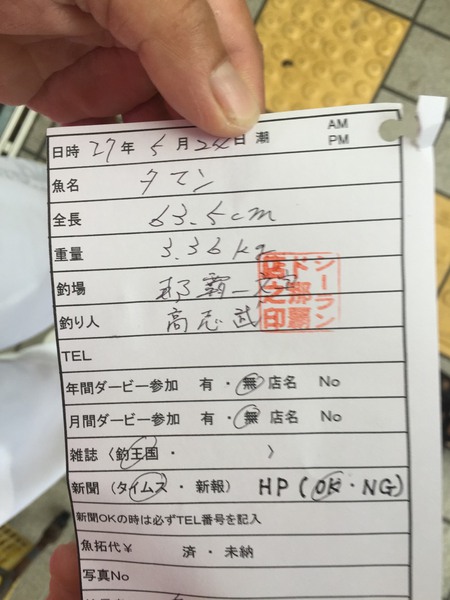 日時 27年 5月24日 潮 AM PM
魚名 タマン
全長 63.5cm
重量 3.36kg
釣場 那覇一文字
シーランド那覇店之印
釣り人 高志武
TEL
年間ダービー参加 有・無 店名 No
月間ダービー参加 有・無 店名 No
雑誌〈釣王国・ 〉
新聞（タイムス・新報） HP(OK・NG)
新聞OKの時は必ずTEL番号を記入
魚拓代￥ 済・未納
写真No